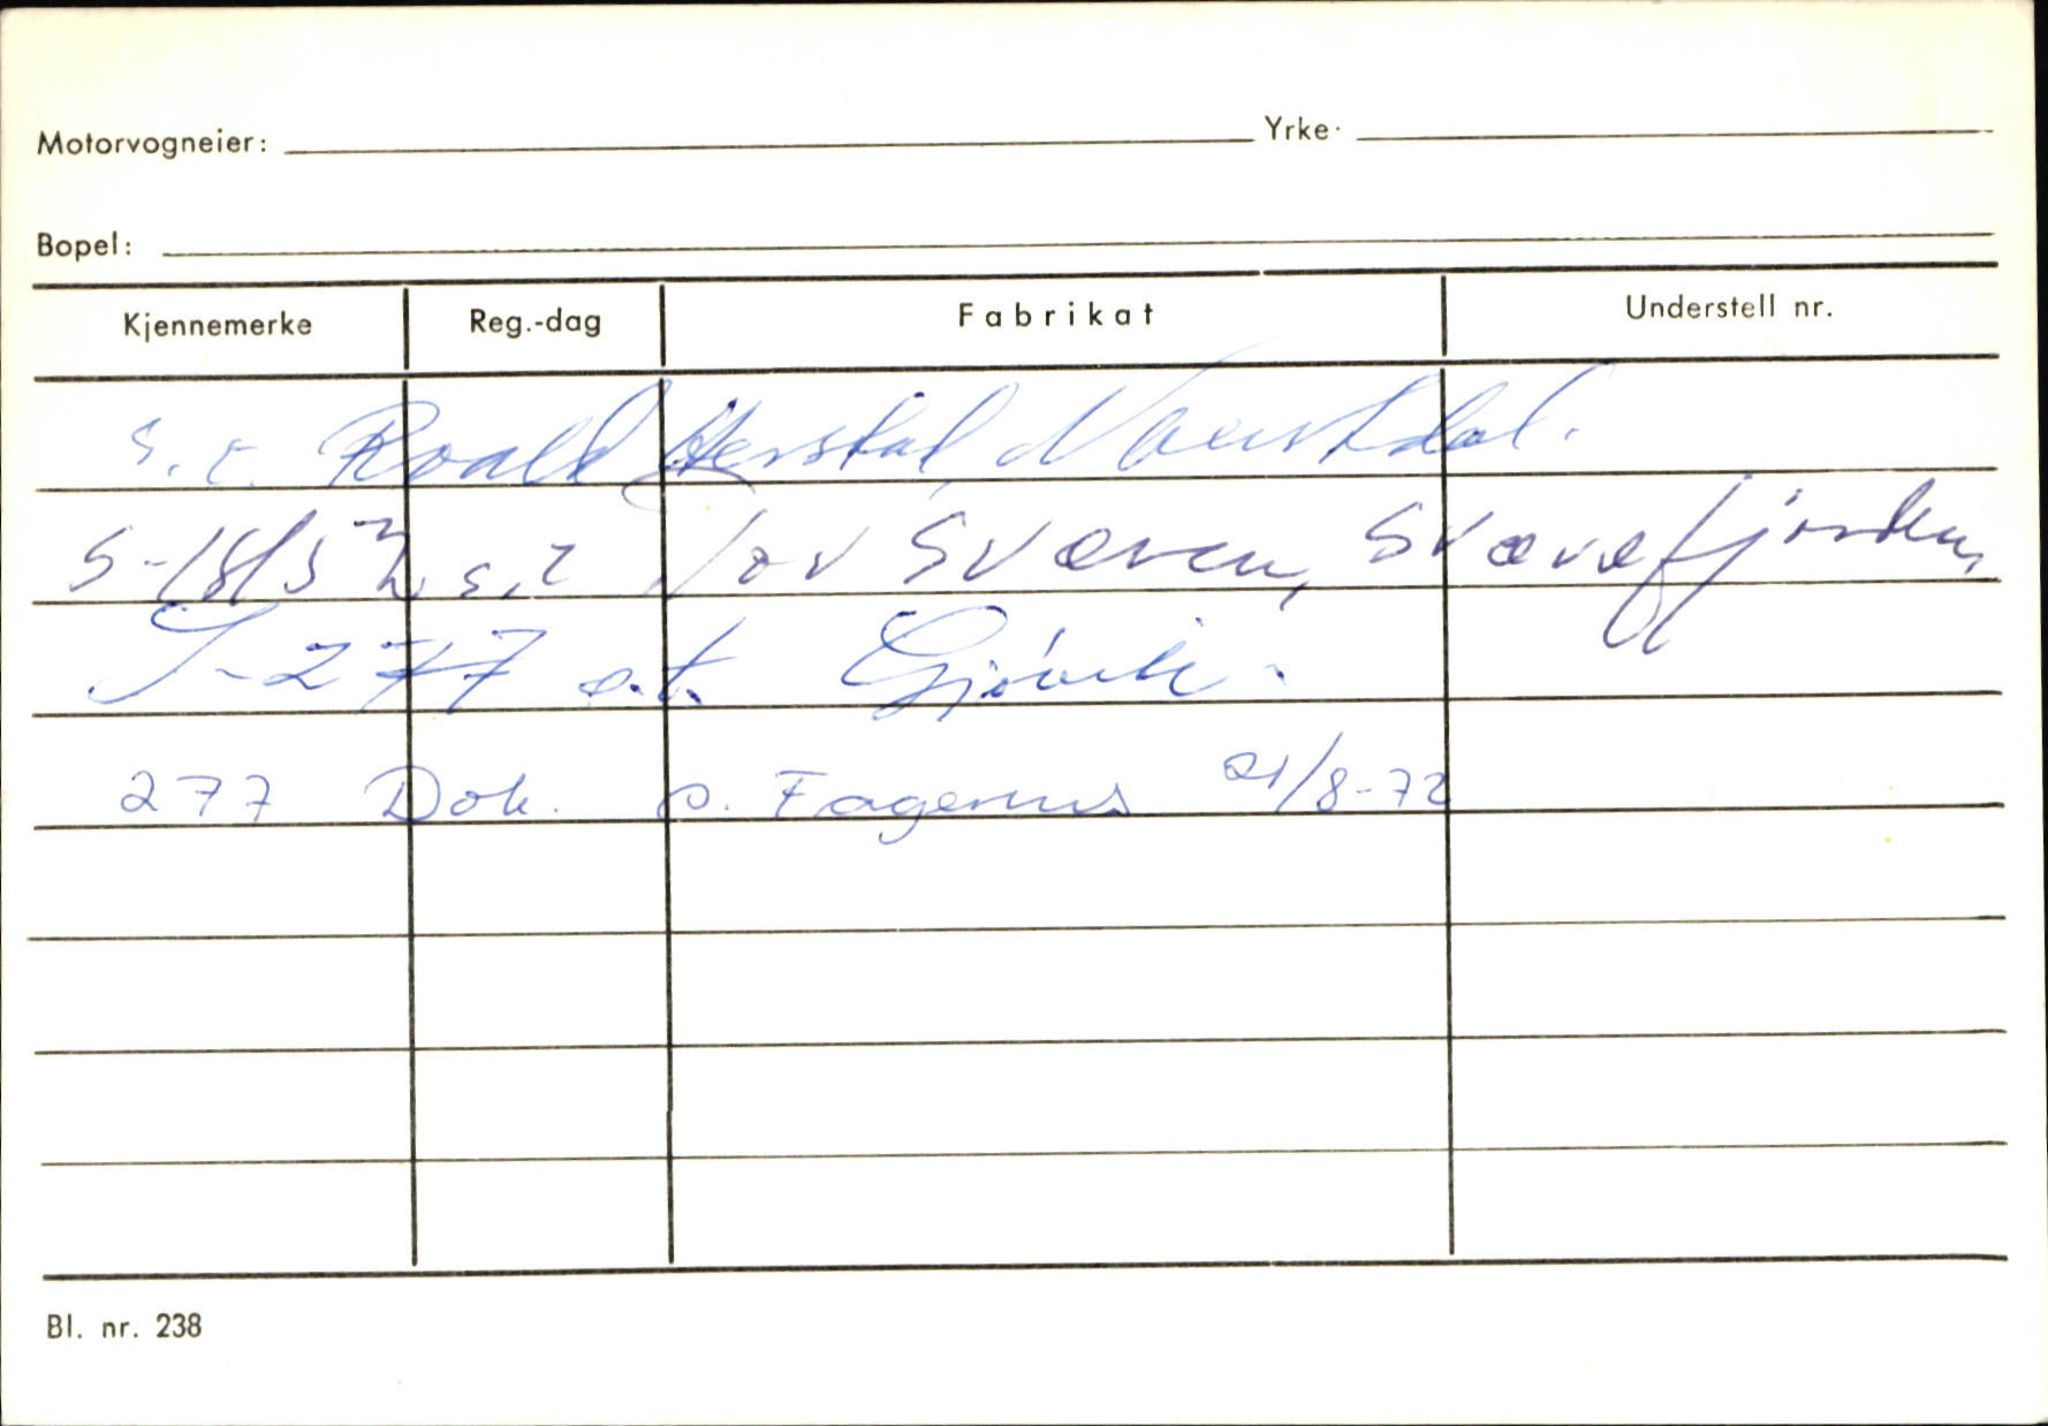 Motorvogneier: Yrke:
Bopel:
Kjennemerke Reg.-dag Fabrikat Understell nr.
s. e. Roald Herstad Naustdal.
S-18 s. e Jov Sværen, Sværefjorden,
S-277 o.t. Gjøvik.
277 Dok. s. Fagernes 21/8-72
Bl. nr. 238